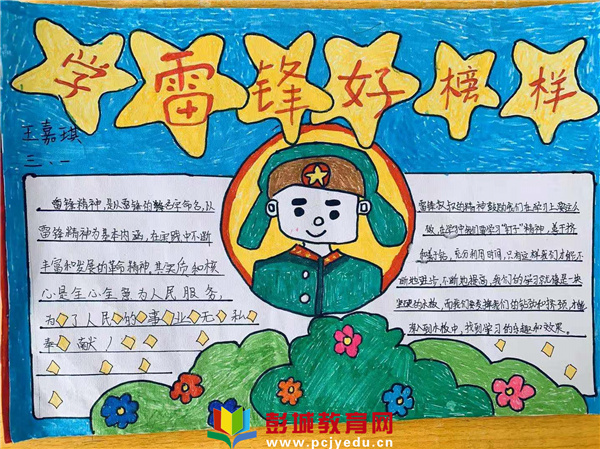 学雷锋好榜样
王嘉琪
三.一
雷锋精神,是以雷锋的名字命名,以
雷锋精神为基本内涵,在实践中不断
丰富和发展的革命精神,其实质和核
心是全心全意为人民服务,
为了人民的事业无私
奉献!
雷锋叔叔的精神鼓励我们在学习上要这么
做,在学校我们要学习"钉子"精神,善于挤
和善于钻,充分利用时间,只有这样我们才能不
断地进步,不断地提高,我们的学习就像是一块
坚硬的木板,而我们要发挥我们的钻劲和挤劲,才能
深入到木板中,找到学习的乐趣和效果。
彭城教育网
www.pcjyedu.cn